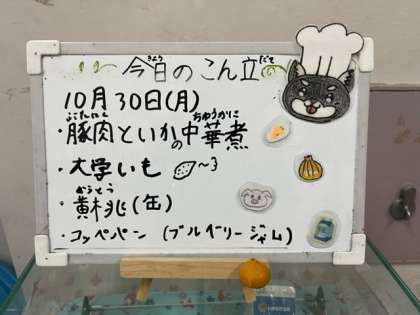 今日のこん立
きょう だて
10月30日(月)
ぶたにく ちゅうかに
・豚肉といかの中華煮
・大学いも 〜3
おうとう
・黄桃(缶)
・コッペパン (ブルーベリージャム)